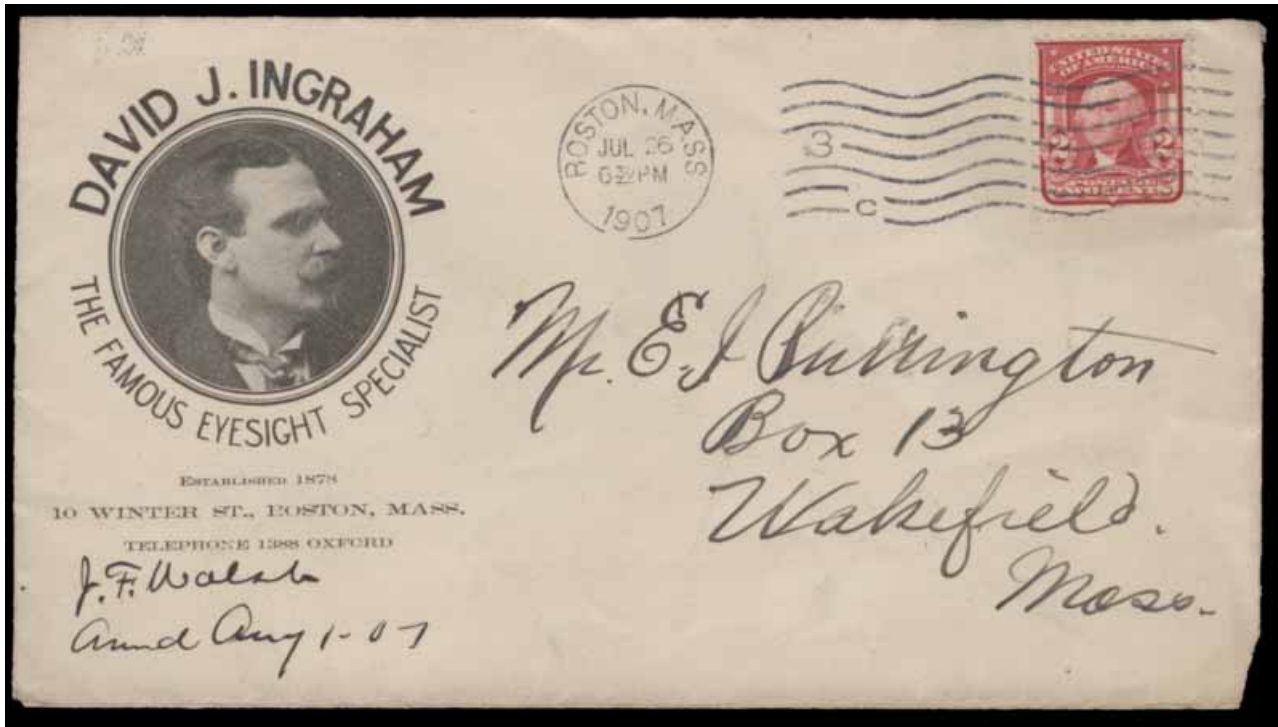 DAVID J. INGRAHAM
THE FAMOUS EYESIGHT SPECIALIST
ESTABLISHED 1878
10 WINTER ST., BOSTON, MASS.
TELEPHONE 1388 OXFORD
J. F. Walsh
Aug 1-07
BOSTON, MASS
JUL 26
6 30 PM
1907
3
C
UNITED STATES
OF AMERICA
2 2
POSTAGE
TWO CENTS
Mr. E. J. Purrington
Box 13
Wakefield.
Mass.